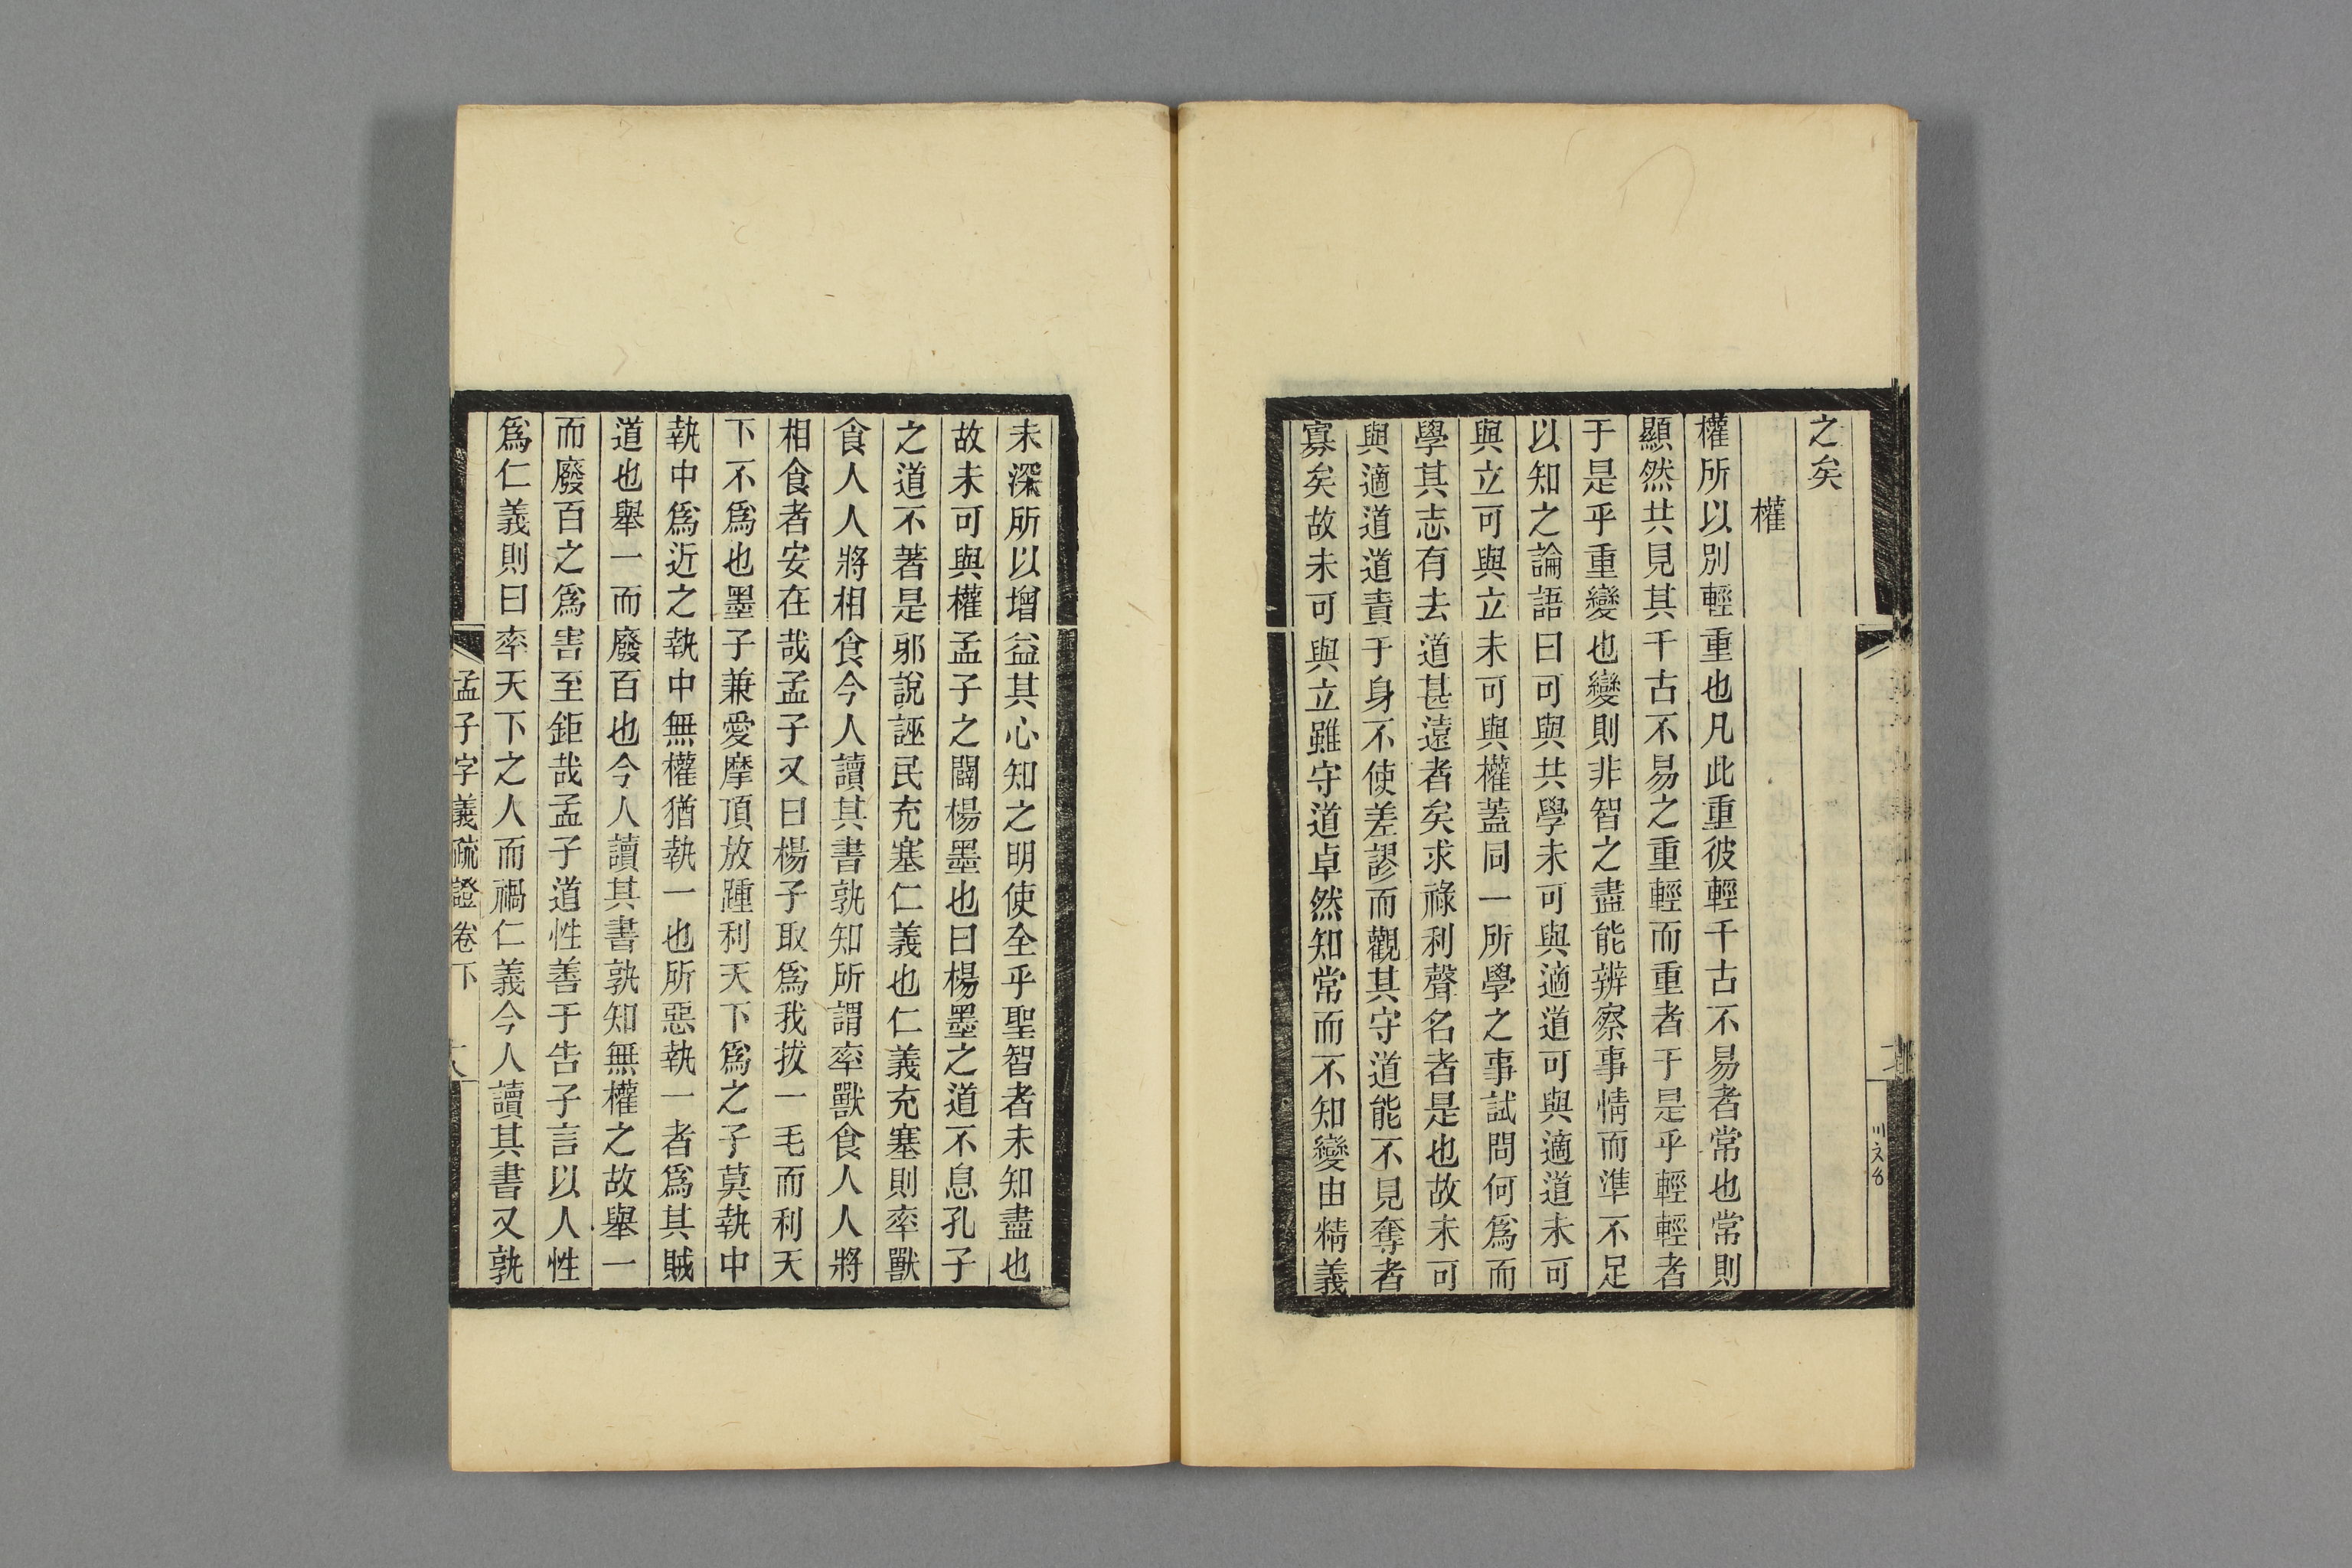 之矣
權
權所以別輕重也凡此重彼輕千古不易者常也常則
顯然共見其千古不易之重輕而重者于是乎輕輕者
于是乎重變也變則非智之盡能辨察事情而準不足
以知之論語曰可與共學未可與適道可與適道未可
與立可與立未可與權蓋同一所學之事試問何爲而
學其志有去道甚遠者矣求祿利聲名者是也故未可
與適道道責于身不使差謬而觀其守道能不見奪者
寡矣故未可與立雖守道卓然知常而不知變由精義
未深所以增益其心知之明使全乎聖智者未知盡也
故未可與權孟子之闢楊墨也曰楊墨之道不息孔子
之道不著是邪說誣民充塞仁義也仁義充塞則率獸
食人人將相食今人讀其書孰知所謂率獸食人人將
相食者安在哉孟子又曰楊子取爲我拔一毛而利天
下不爲也墨子兼愛摩頂放踵利天下爲之子莫執中
執中爲近之執中無權猶執一也所惡執一者爲其賊
道也舉一而廢百也今人讀其書孰知無權之故舉一
而廢百之爲害至鉅哉孟子道性善于告子言以人性
爲仁義則曰率天下之人而禍仁義今人讀其書又孰
孟子字義疏證卷下